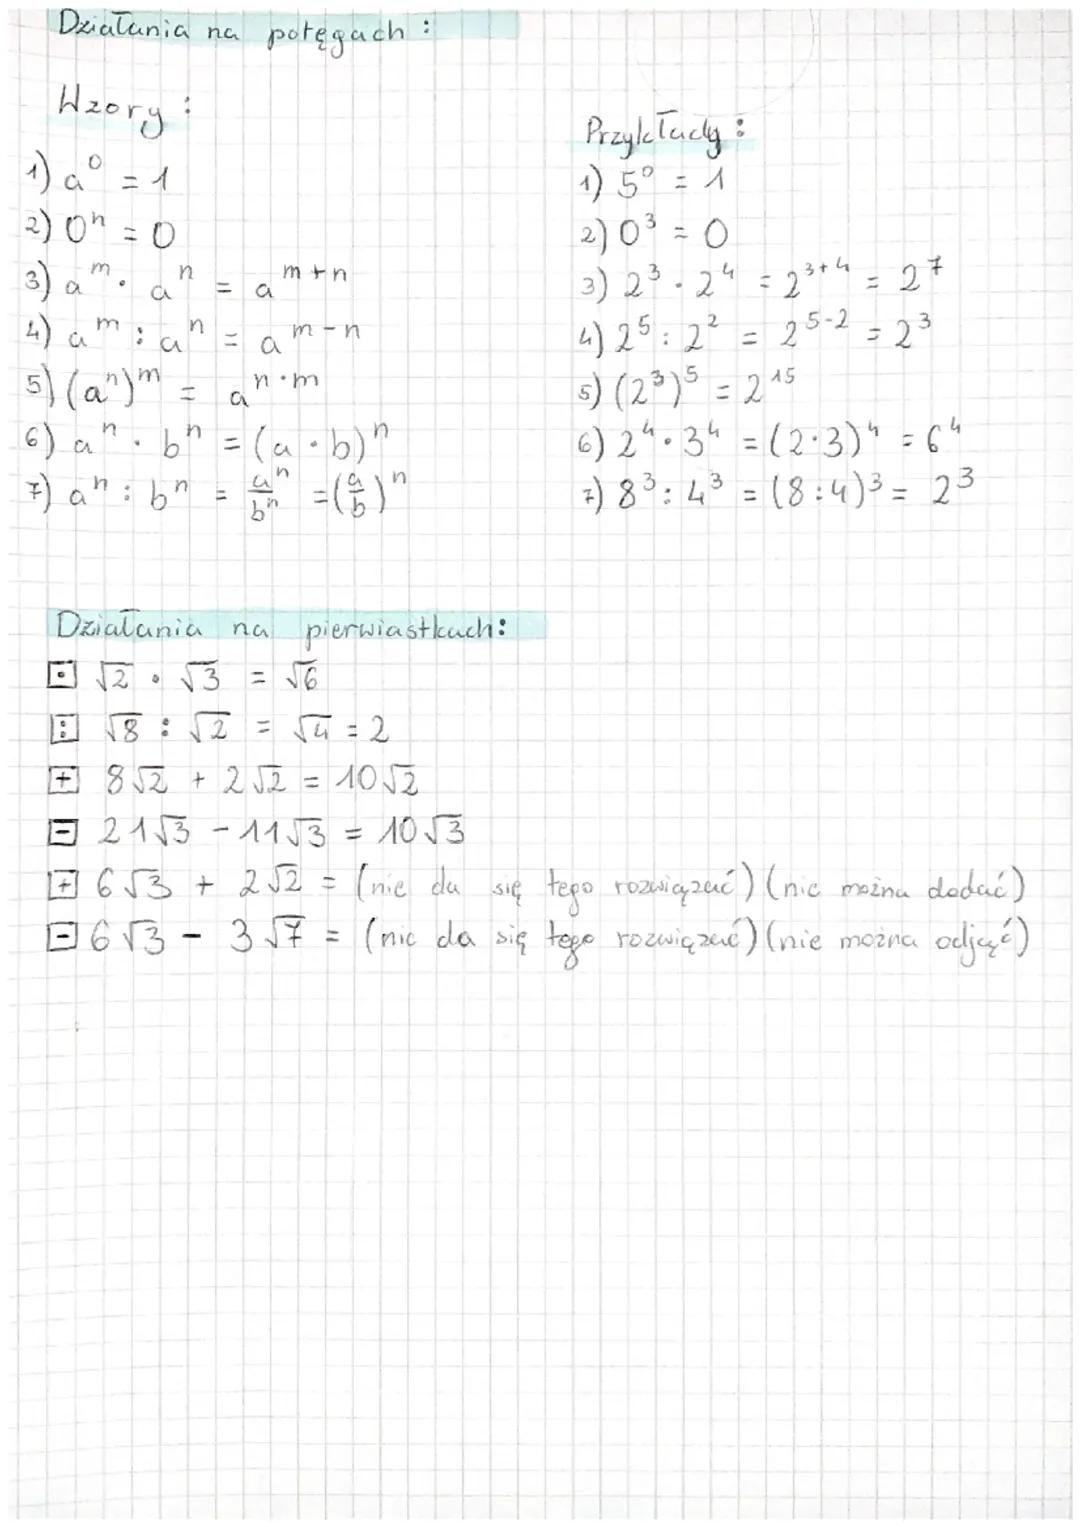 Działania na potęgach :
Wzory :
1) a⁰ = 1
2) 0ⁿ = 0
3) aᵐ · aⁿ = aᵐ⁺ⁿ
4) aᵐ : aⁿ = aᵐ⁻ⁿ
5) (aⁿ)ᵐ = aⁿ·ᵐ
6) aⁿ · bⁿ = (a · b)ⁿ
7) aⁿ : bⁿ = aⁿ/bⁿ = (a/b)ⁿ
Przykłady :
1) 5⁰ = 1
2) 0³ = 0
3) 2³ · 2⁴ = 2³⁺⁴ = 2⁷
4) 2⁵ : 2² = 2⁵⁻² = 2³
5) (2³)⁵ = 2¹⁵
6) 2⁴ · 3⁴ = (2·3)⁴ = 6⁴
7) 8³ : 4³ = (8:4)³ = 2³
Działania na pierwiastkach:
· √2 · √3 = √6
: √8 : √2 = √4 = 2
+ 8√2 + 2√2 = 10√2
- 21√3 - 11√3 = 10√3
+ 6√3 + 2√2 = (nie da się tego rozwiązać) (nie można dodać)
- 6√3 - 3√7 = (nie da się tego rozwiązać) (nie można odjąć)